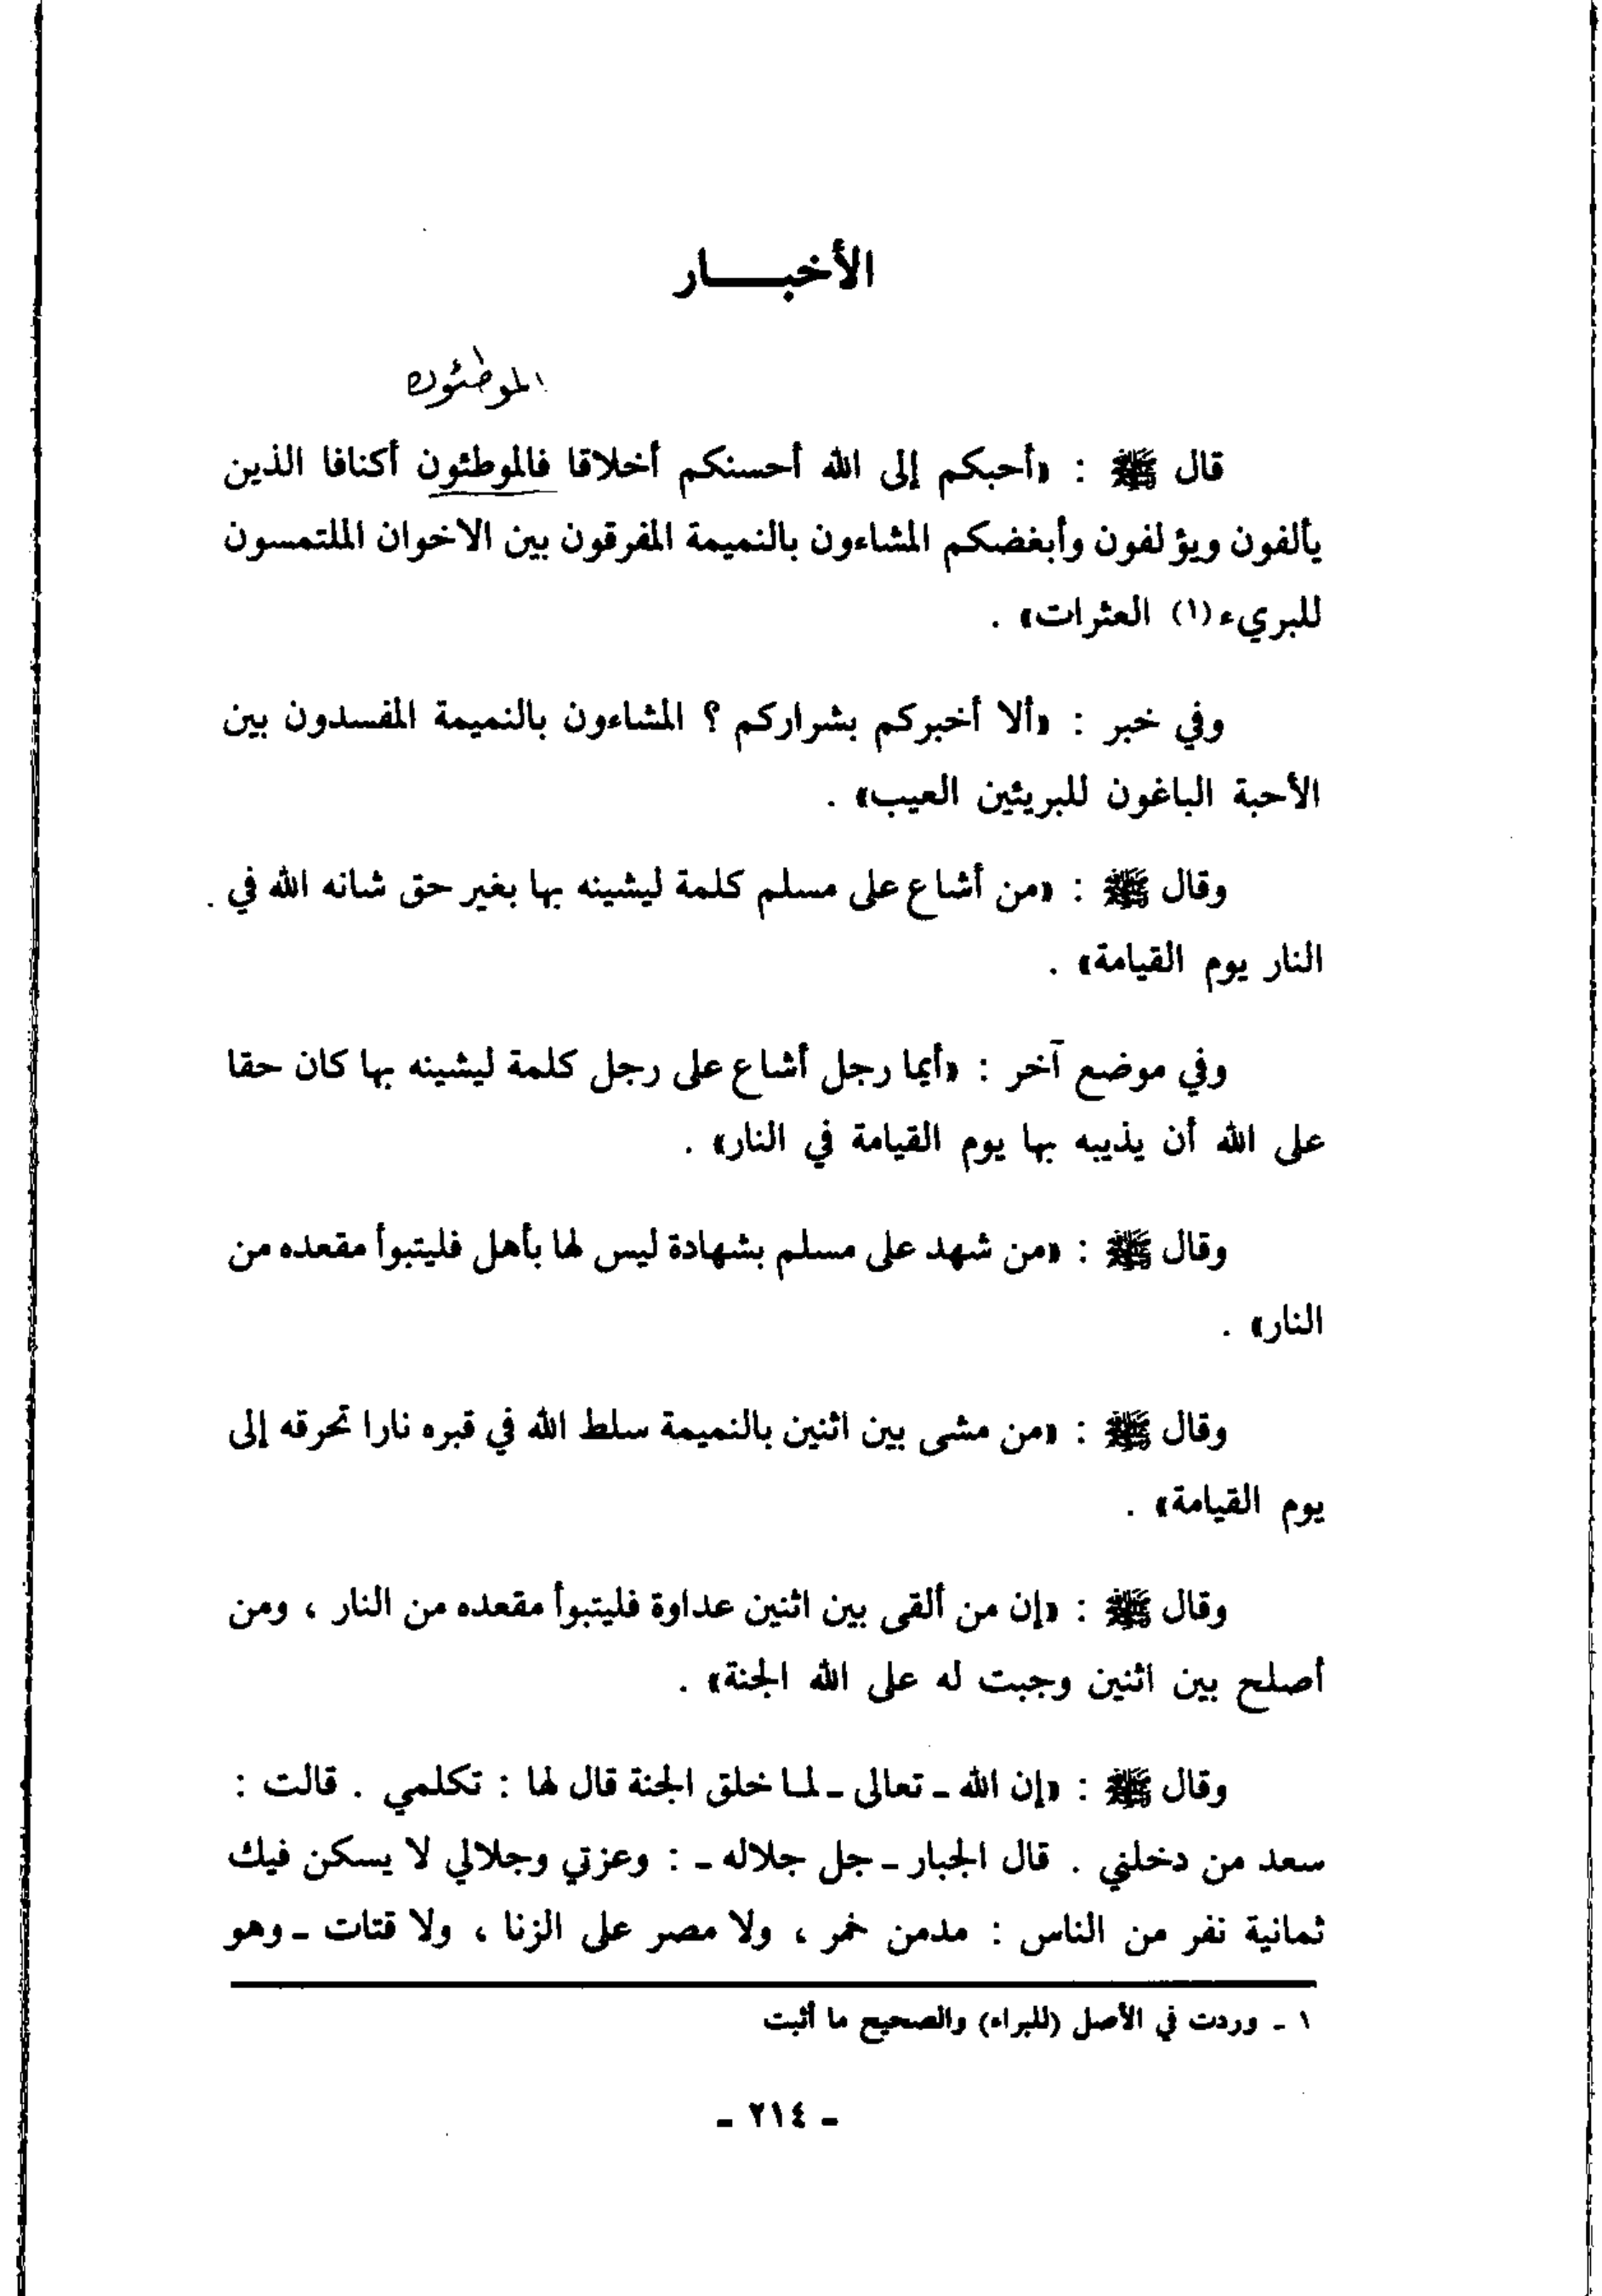 الأخبـــار
الموطئون
قال ﷺ : «أحبكم إلى الله أحسنكم أخلاقا فالموطئون أكنافا الذين
يألفون ويؤلفون وأبغضكم المشاءون بالنميمة المفرقون بين الاخوان الملتمسون
للبريء(١) العثرات» .
وفي خبر : «ألا أخبركم بشراركم ؟ المشاءون بالنميمة المفسدون بين
الأحبة الباغون للبريئين العيب» .
وقال ﷺ : «من أشاع على مسلم كلمة ليشينه بها بغير حق شانه الله في
النار يوم القيامة» .
وفي موضع آخر : «أيما رجل أشاع على رجل كلمة ليشينه بها كان حقا
على الله أن يذيبه بها يوم القيامة في النار» .
وقال ﷺ : «من شهد على مسلم بشهادة ليس لها بأهل فليتبوأ مقعده من
النار» .
وقال ﷺ : «من مشى بين اثنين بالنميمة سلط الله في قبره نارا تحرقه إلى
يوم القيامة» .
وقال ﷺ : «إن من ألقى بين اثنين عداوة فليتبوأ مقعده من النار ، ومن
أصلح بين اثنين وجبت له على الله الجنة» .
وقال ﷺ : «إن الله ـ تعالى ـ لما خلق الجنة قال لها : تكلمي . قالت :
سعد من دخلني . قال الجبار ـ جل جلاله ـ : وعزتي وجلالي لا يسكن فيك
ثمانية نفر من الناس : مدمن خمر ، ولا مصر على الزنا ، ولا قتات ـ وهو
١ ـ وردت في الأصل (للبراء) والصحيح ما أثبت
ـ ٢١٤ ـ